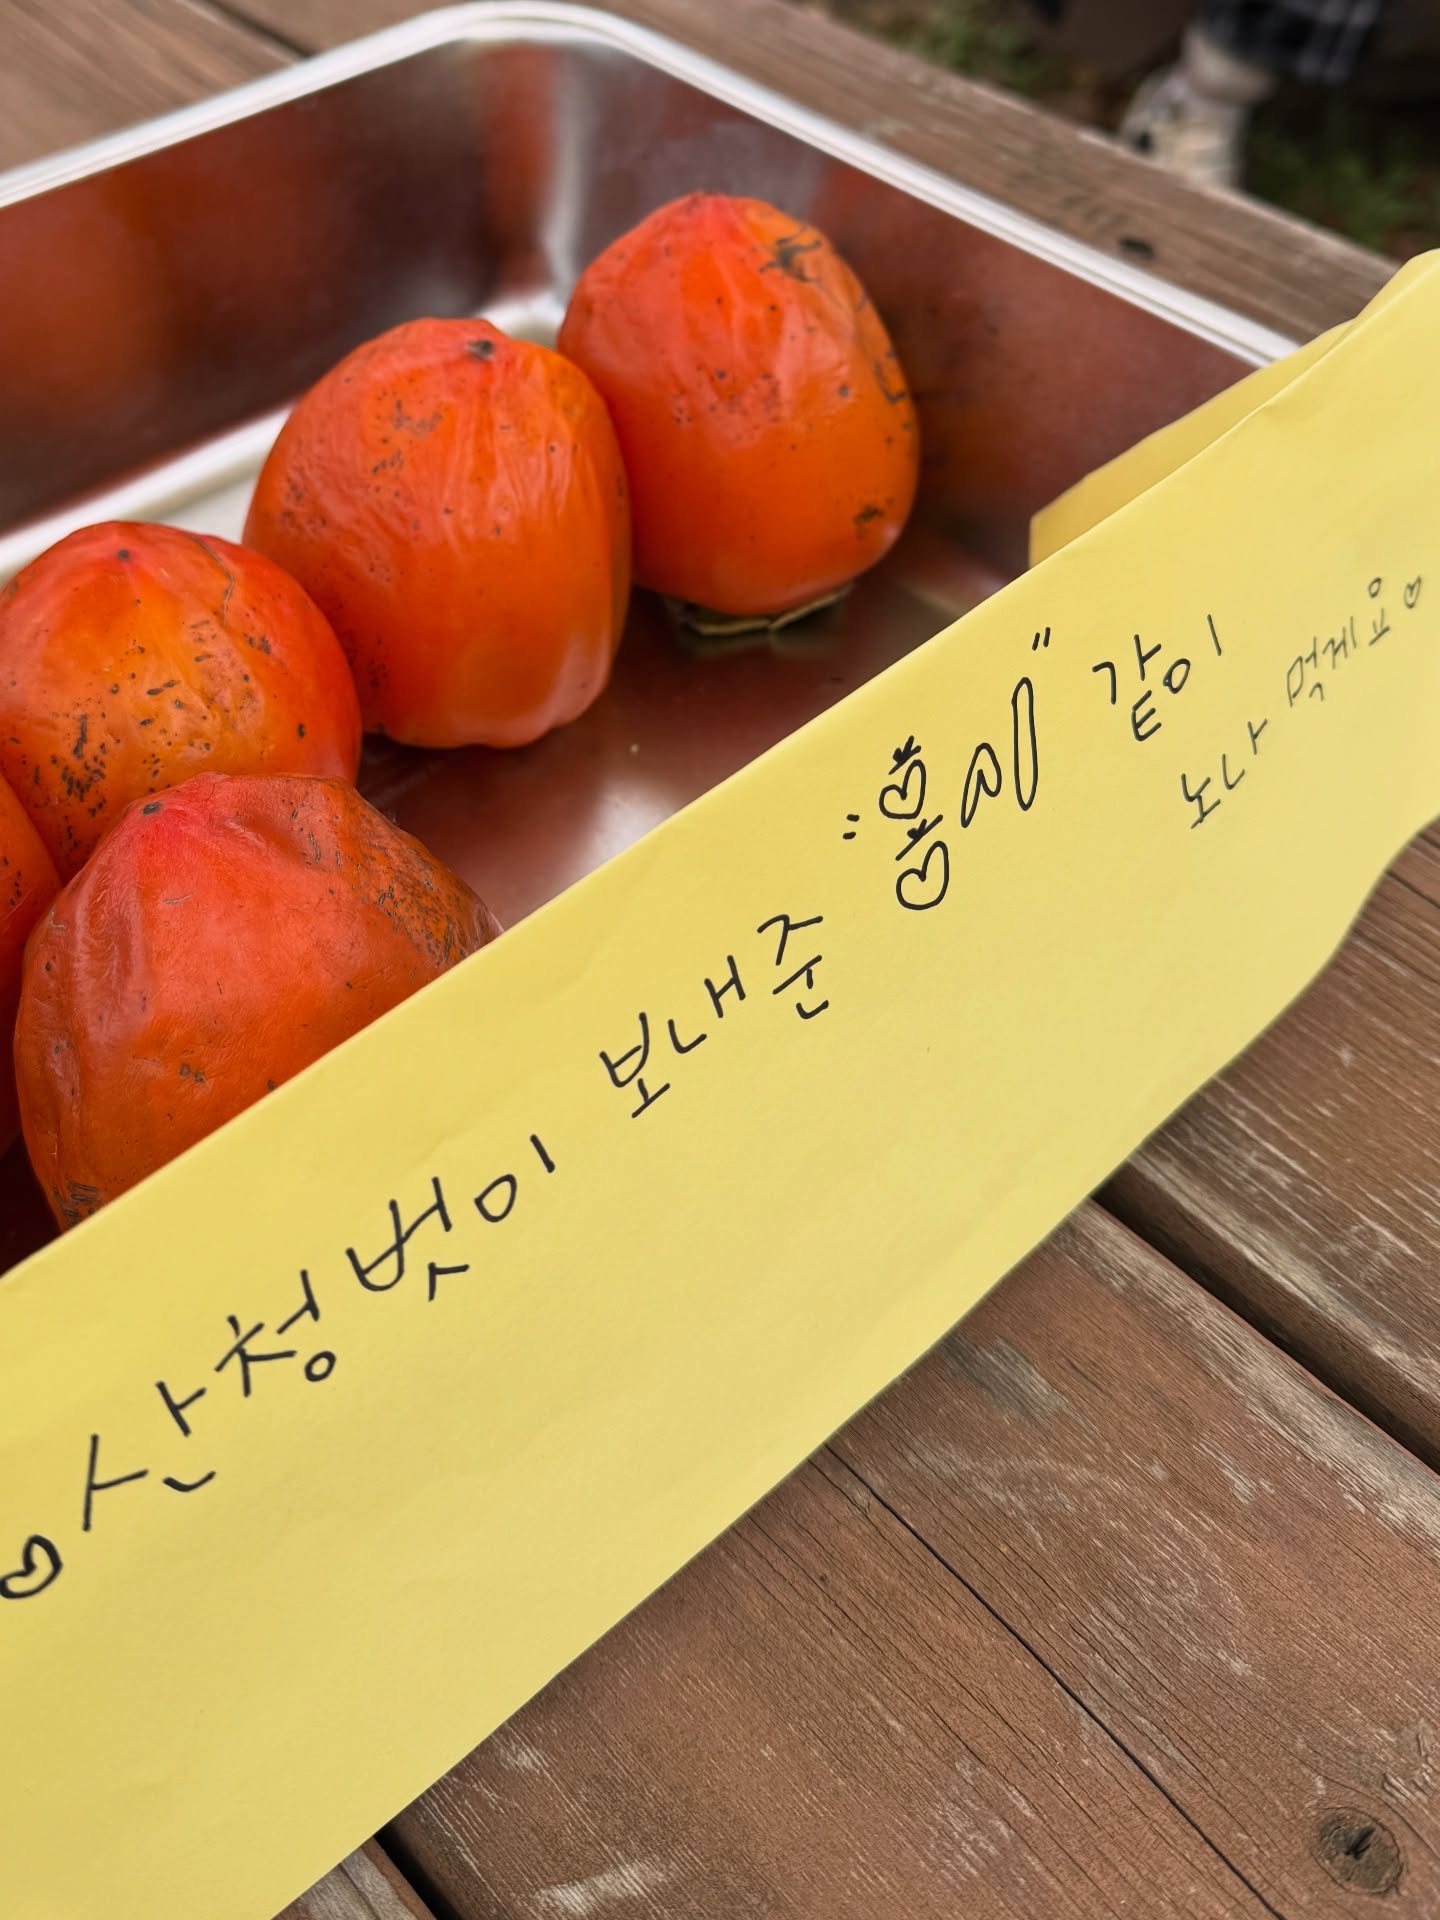 ♡산청벗이 보내준 "홍시" 같이
노나 먹게요♡